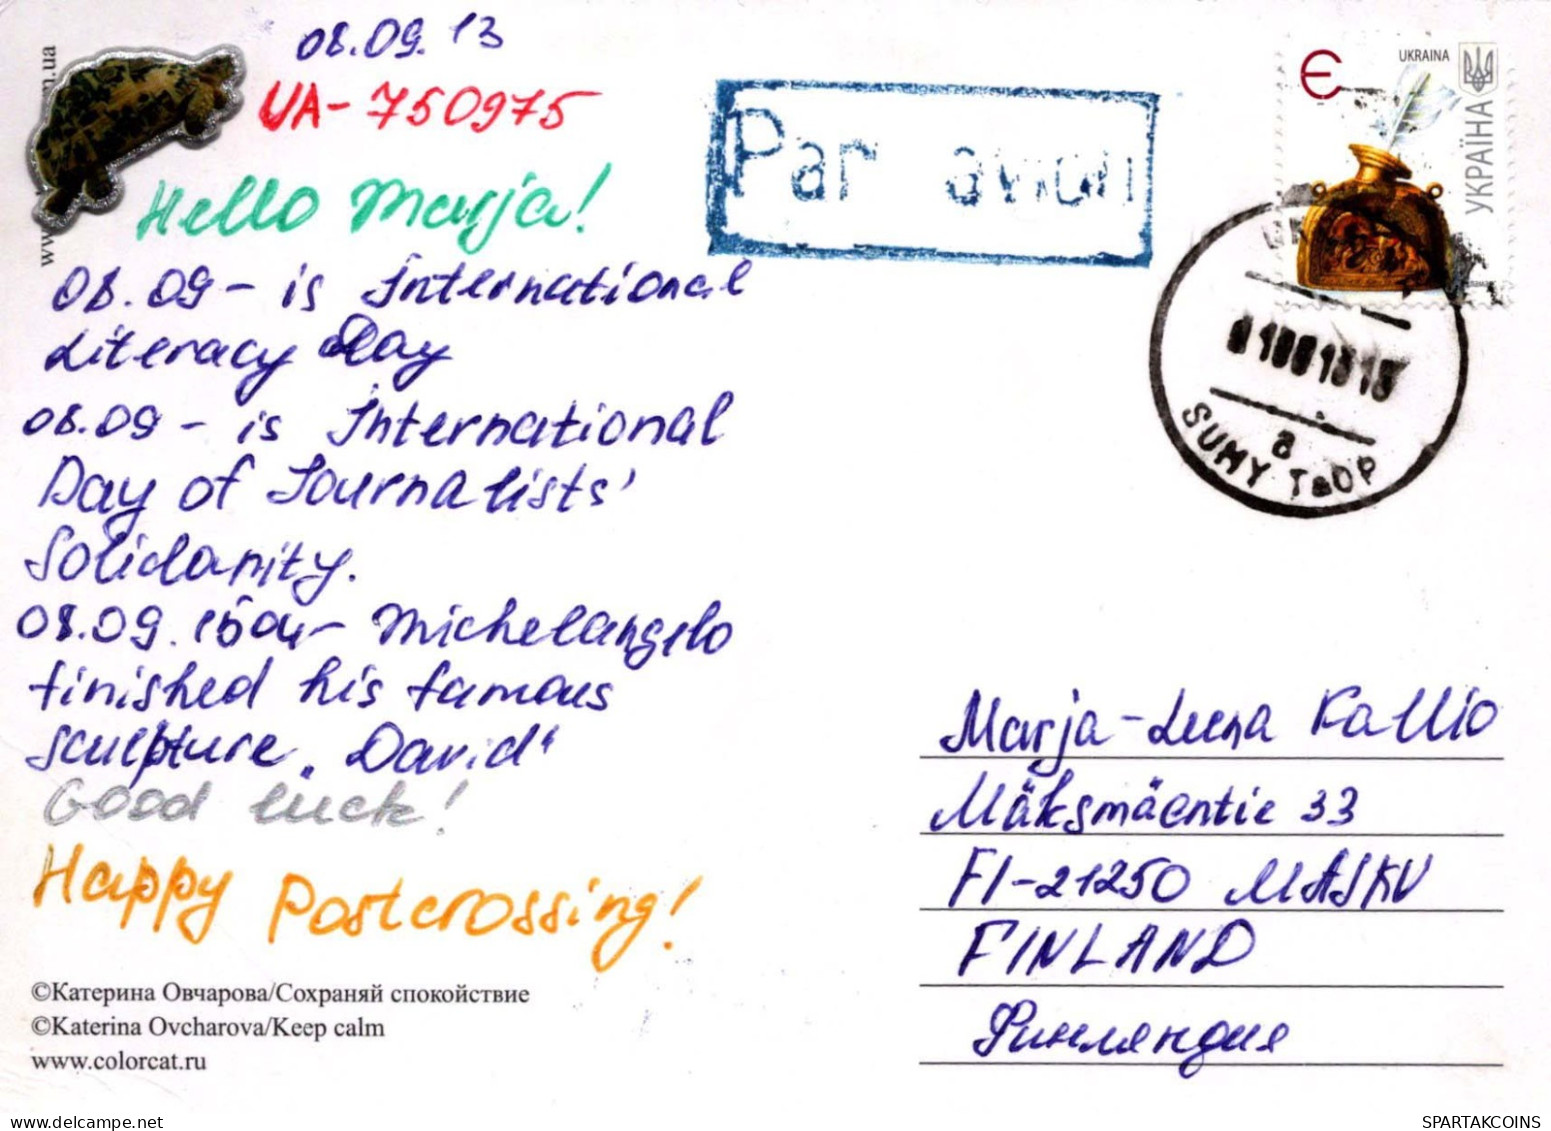 08.09.13
UA-750975
Hello Marja!
08.09 - is International
Literacy Day
08.09 - is International
Day of Journalists'
Solidarity.
08.09.1504 - Michelangelo
finished his famous
sculpture „David“
Good luck!
Happy Postcrossing!
©Катерина Овчарова/Сохраняй спокойствие
©Katerina Ovcharova/Keep calm
www.colorcat.ru
Par avion
Є
UKRAINA
УКРАЇНА
a
SUMY
Marja-Leena Kallio
Mäksmäentie 33
FI-21250 MASKU
FINLAND
Финляндия
SPARTAKCOINS